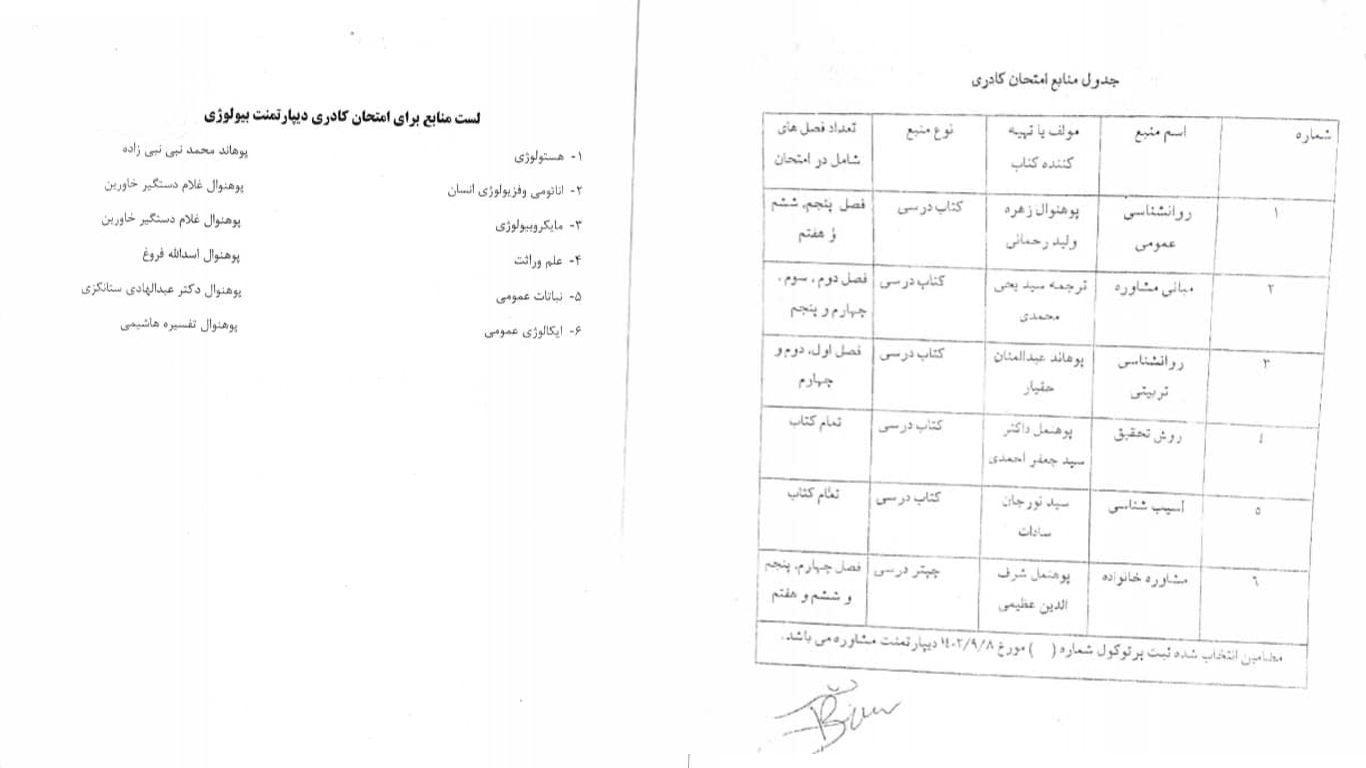 جدول منابع امتحان کادری
شماره
اسم منبع
مولف یا تهیه
کننده کتاب
نوع منبع
تعداد فصل های
شامل در امتحان
۱
روانشناسی
عمومی
پوهنوال زهره
ولید رحمانی
کتاب درسی
فصل پنجم، ششم
و هفتم
۲
مبانی مشاوره
ترجمه سید یحی
محمدی
کتاب درسی
فصل دوم ، سوم ،
چهارم و پنجم
۳
روانشناسی
تربیتی
پوهاند عبدالمنان
حقیار
کتاب درسی
فصل اول، دوم و
چهارم
٤
روش تحقیق
پوهنمل داکتر
سید جعفر احمدی
کتاب درسی
تمام کتاب
٥
آسیب شناسی
سید نورجان
سادات
کتاب درسی
تمام کتاب
٦
مشاوره خانواده
پوهنمل شرف
الدین عظیمی
چپتر درسی
فصل چهارم، پنجم
و ششم و هفتم
مضامین انتخاب شده ثبت پرتوکول شماره ( ) مورخ ۱٤۰۲/۹/۸ دیپارتمنت مشاوره می باشد.
لست منابع برای امتحان کادری دیپارتمنت بیولوژی
۱- هستولوژی پوهاند محمد نبی نبی زاده
۲- اناتومی وفزیولوژی انسان پوهنوال غلام دستگیر خاورین
۳- مایکروبیولوژی پوهنوال غلام دستگیر خاورین
۴- علم وراثت پوهنوال اسدالله فروغ
۵- نباتات عمومی پوهنوال دکتر عبدالهادی ستانکزی
۶- ایکالوژی عمومی پوهنوال تفسیره هاشیمی